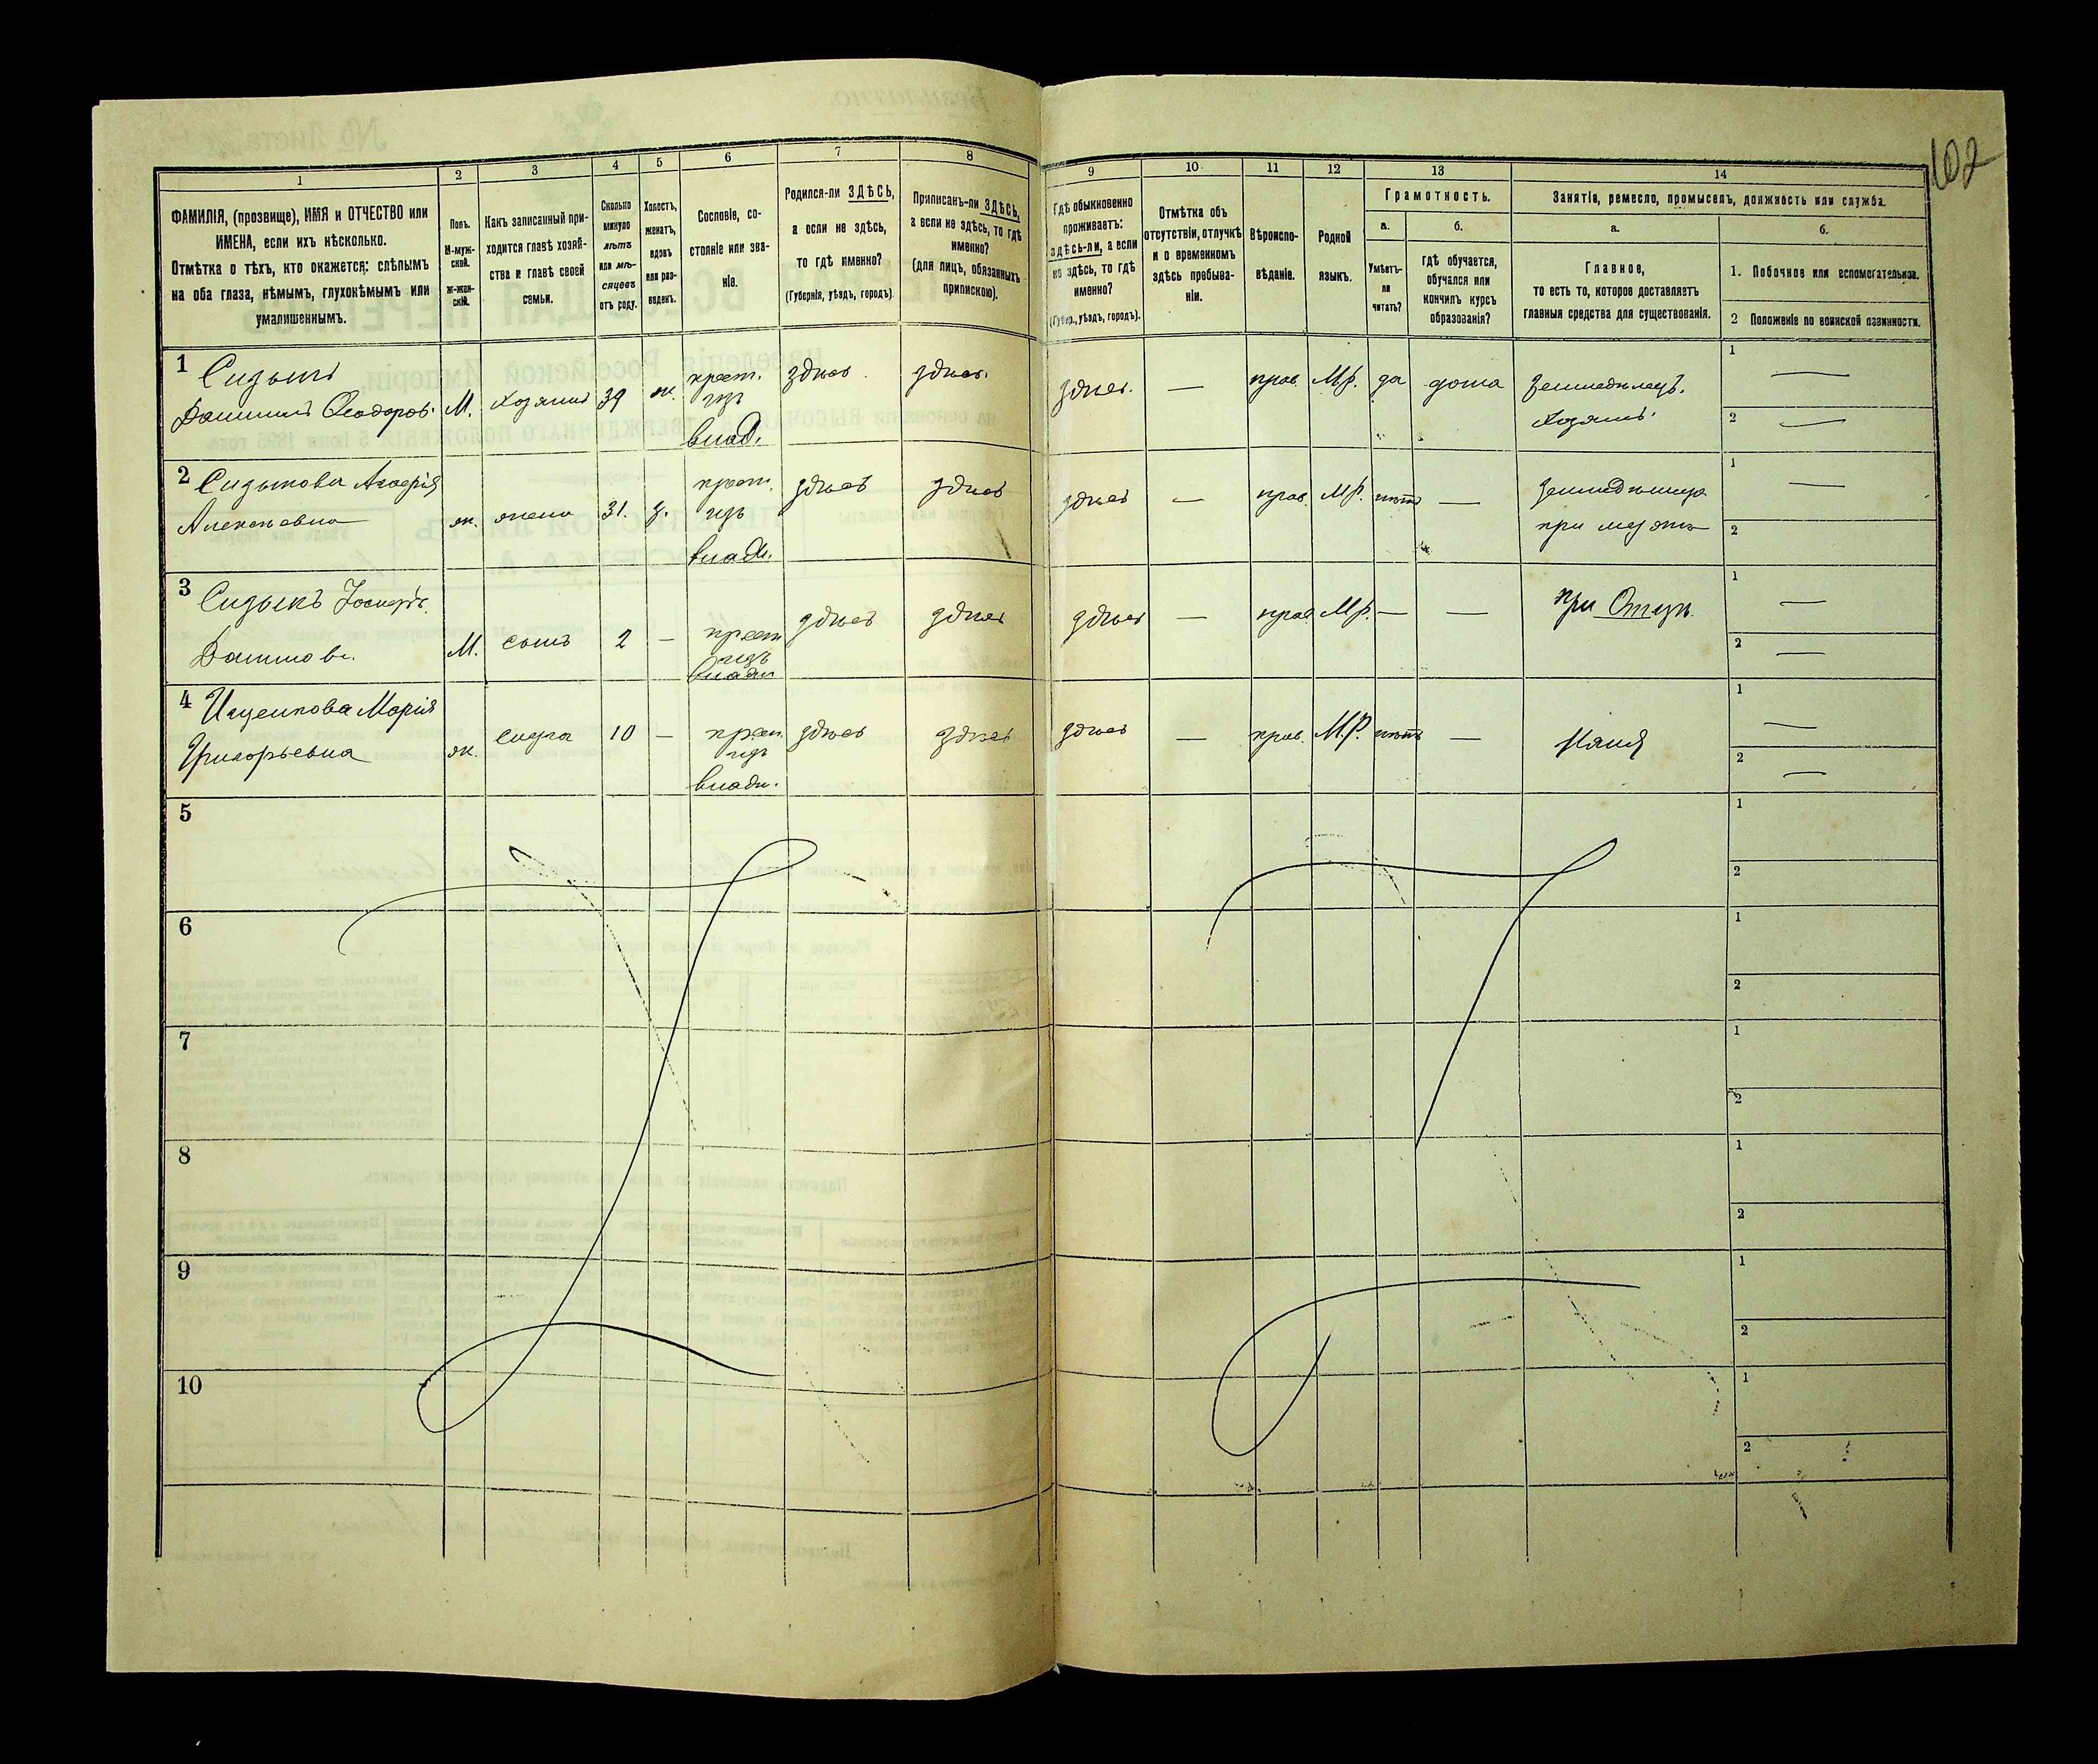 102
1 2 3 4 5 6 7 8 9 10 11 12 13 14
ФАМИЛІЯ, (прозвище), ИМЯ и ОТЧЕСТВО или
ИМЕНА, если ихъ нѣсколько.
Отмѣтка о тѣхъ, кто окажется: слѣпымъ
на оба глаза, нѣмымъ, глухонѣмымъ или
умалишеннымъ.
Полъ.
М-муж-
ской.
Ж-жен-
скій.
Какъ записанный при-
ходится главѣ хозяй-
ства и главѣ своей
семьи.
Сколько
минуло
лѣтъ
или мѣ-
сяцевъ
отъ роду.
Холостъ,
женатъ,
вдовъ
или раз-
веденъ.
Сословіе, со-
стояніе или зва-
ніе.
Родился-ли ЗДѢСЬ,
а если не здѣсь,
то гдѣ именно?
(Губернія, уѣздъ, городъ).
Приписанъ-ли ЗДѢСЬ,
а если не здѣсь, то гдѣ
именно?
(для лицъ, обязанныхъ
припискою).
Гдѣ обыкновенно
проживаетъ:
здѣсь-ли, а если
не здѣсь, то гдѣ
именно?
(Губер., уѣздъ, городъ).
Отмѣтка объ
отсутствіи, отлучкѣ
и о временномъ
здѣсь пребыва-
ніи.
Вѣроиспо-
вѣданіе.
Родной
языкъ.
Грамотность.
а.
Умѣетъ-
ли
читать?
б.
Гдѣ обучается,
обучался или
кончилъ курсъ
образованія?
Занятіе, ремесло, промыселъ, должность или служба.
а.
Главное,
то есть то, которое доставляетъ
главныя средства для существованія.
б.
1. Побочное или вспомогательное.
2 Положеніе по воинской повинности.
1 Сидыкъ
Ѳеодоров. М. хозяинъ 39 ж. крест. здѣсь. здѣсь. здѣсь. — прав. М.р. да дома земледѣлецъ. 1 —
изъ
влад. хозяинъ. 2 —
2 Сидыкова
Алексѣевна ж. жена 31. з. крест. здѣсь здѣсь здѣсь — прав. М.р. нѣтъ — 1 —
изъ
влад. при мужѣ 2
3 Сидыкъ Іосифъ
М. сынъ 2 — крест здѣсь здѣсь здѣсь — прав. М.р. — — при Отцѣ. 1 —
изъ
влад. 2 —
4 Марія
Григорьевна ж. слуга 10 — крест. здѣсь здѣсь здѣсь — прав. М.р. нѣтъ — няня 1 —
изъ
влад. 2 —
5 1
2
6 1
2
7 1
2
8 1
2
9 1
2
10 1
2